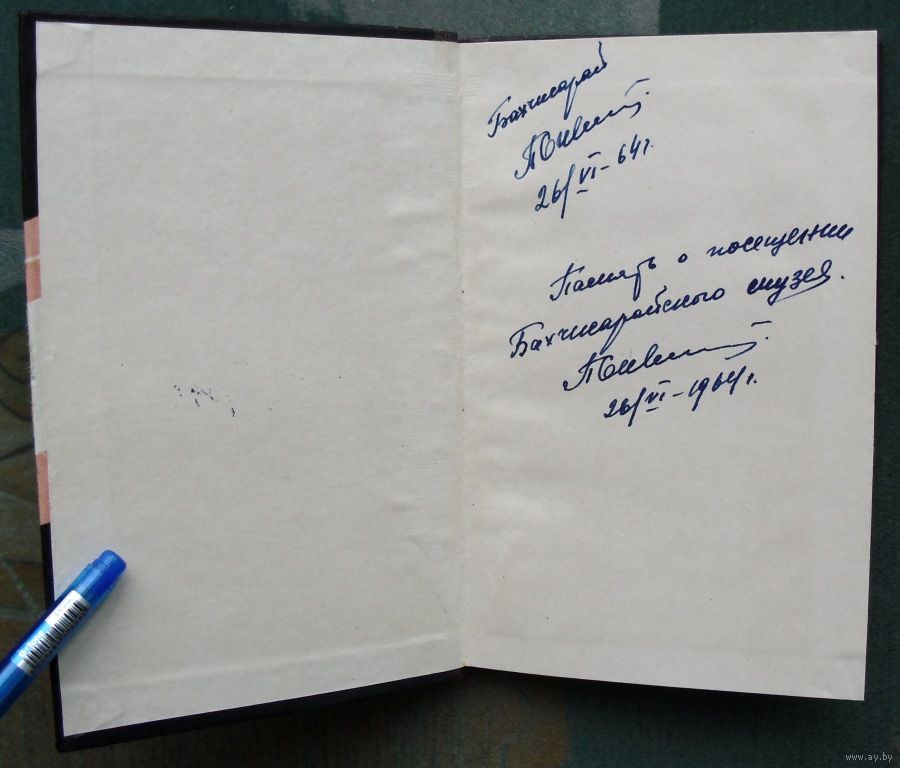 Бахчисарай
26/VI-64г.
Память о посещении
Бахчисарайского музея.
26/VI-1964г.
www.ay.by